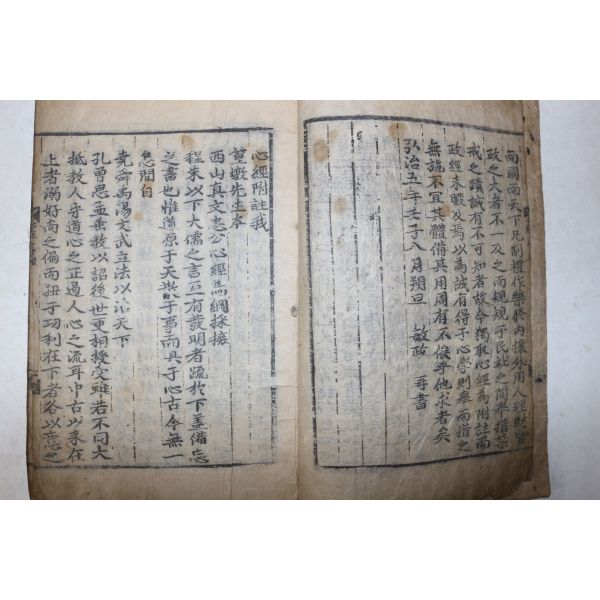 而國而天下凡制禮作樂修內攘外用人理財皆
政之大者不一及之而規規于民社之間舉措若
戒之蹟誠有不可知者故今獨取心經為附註而
政經未暇及焉以為誠有得于心學則舉而措之
無施不宜其體備其用周有不俟乎他求者矣
弘治五年壬子八月朔旦 敏政 再書
心經附註義
篁墩先生本
西山真文忠公心經為綱採掇
程朱以下大儒之言互有發明者疏於下蓋備忘
之書也惟道原于天畀于事而具于心古今無一
息間自
堯舜禹湯文武立法以治天下
孔曾思孟垂教以詔後世更相授受雖若不同大
抵教人守道心之正遏人心之流耳中古以來在
上者溺好尚之偏而狃于功利在下者各以忘之